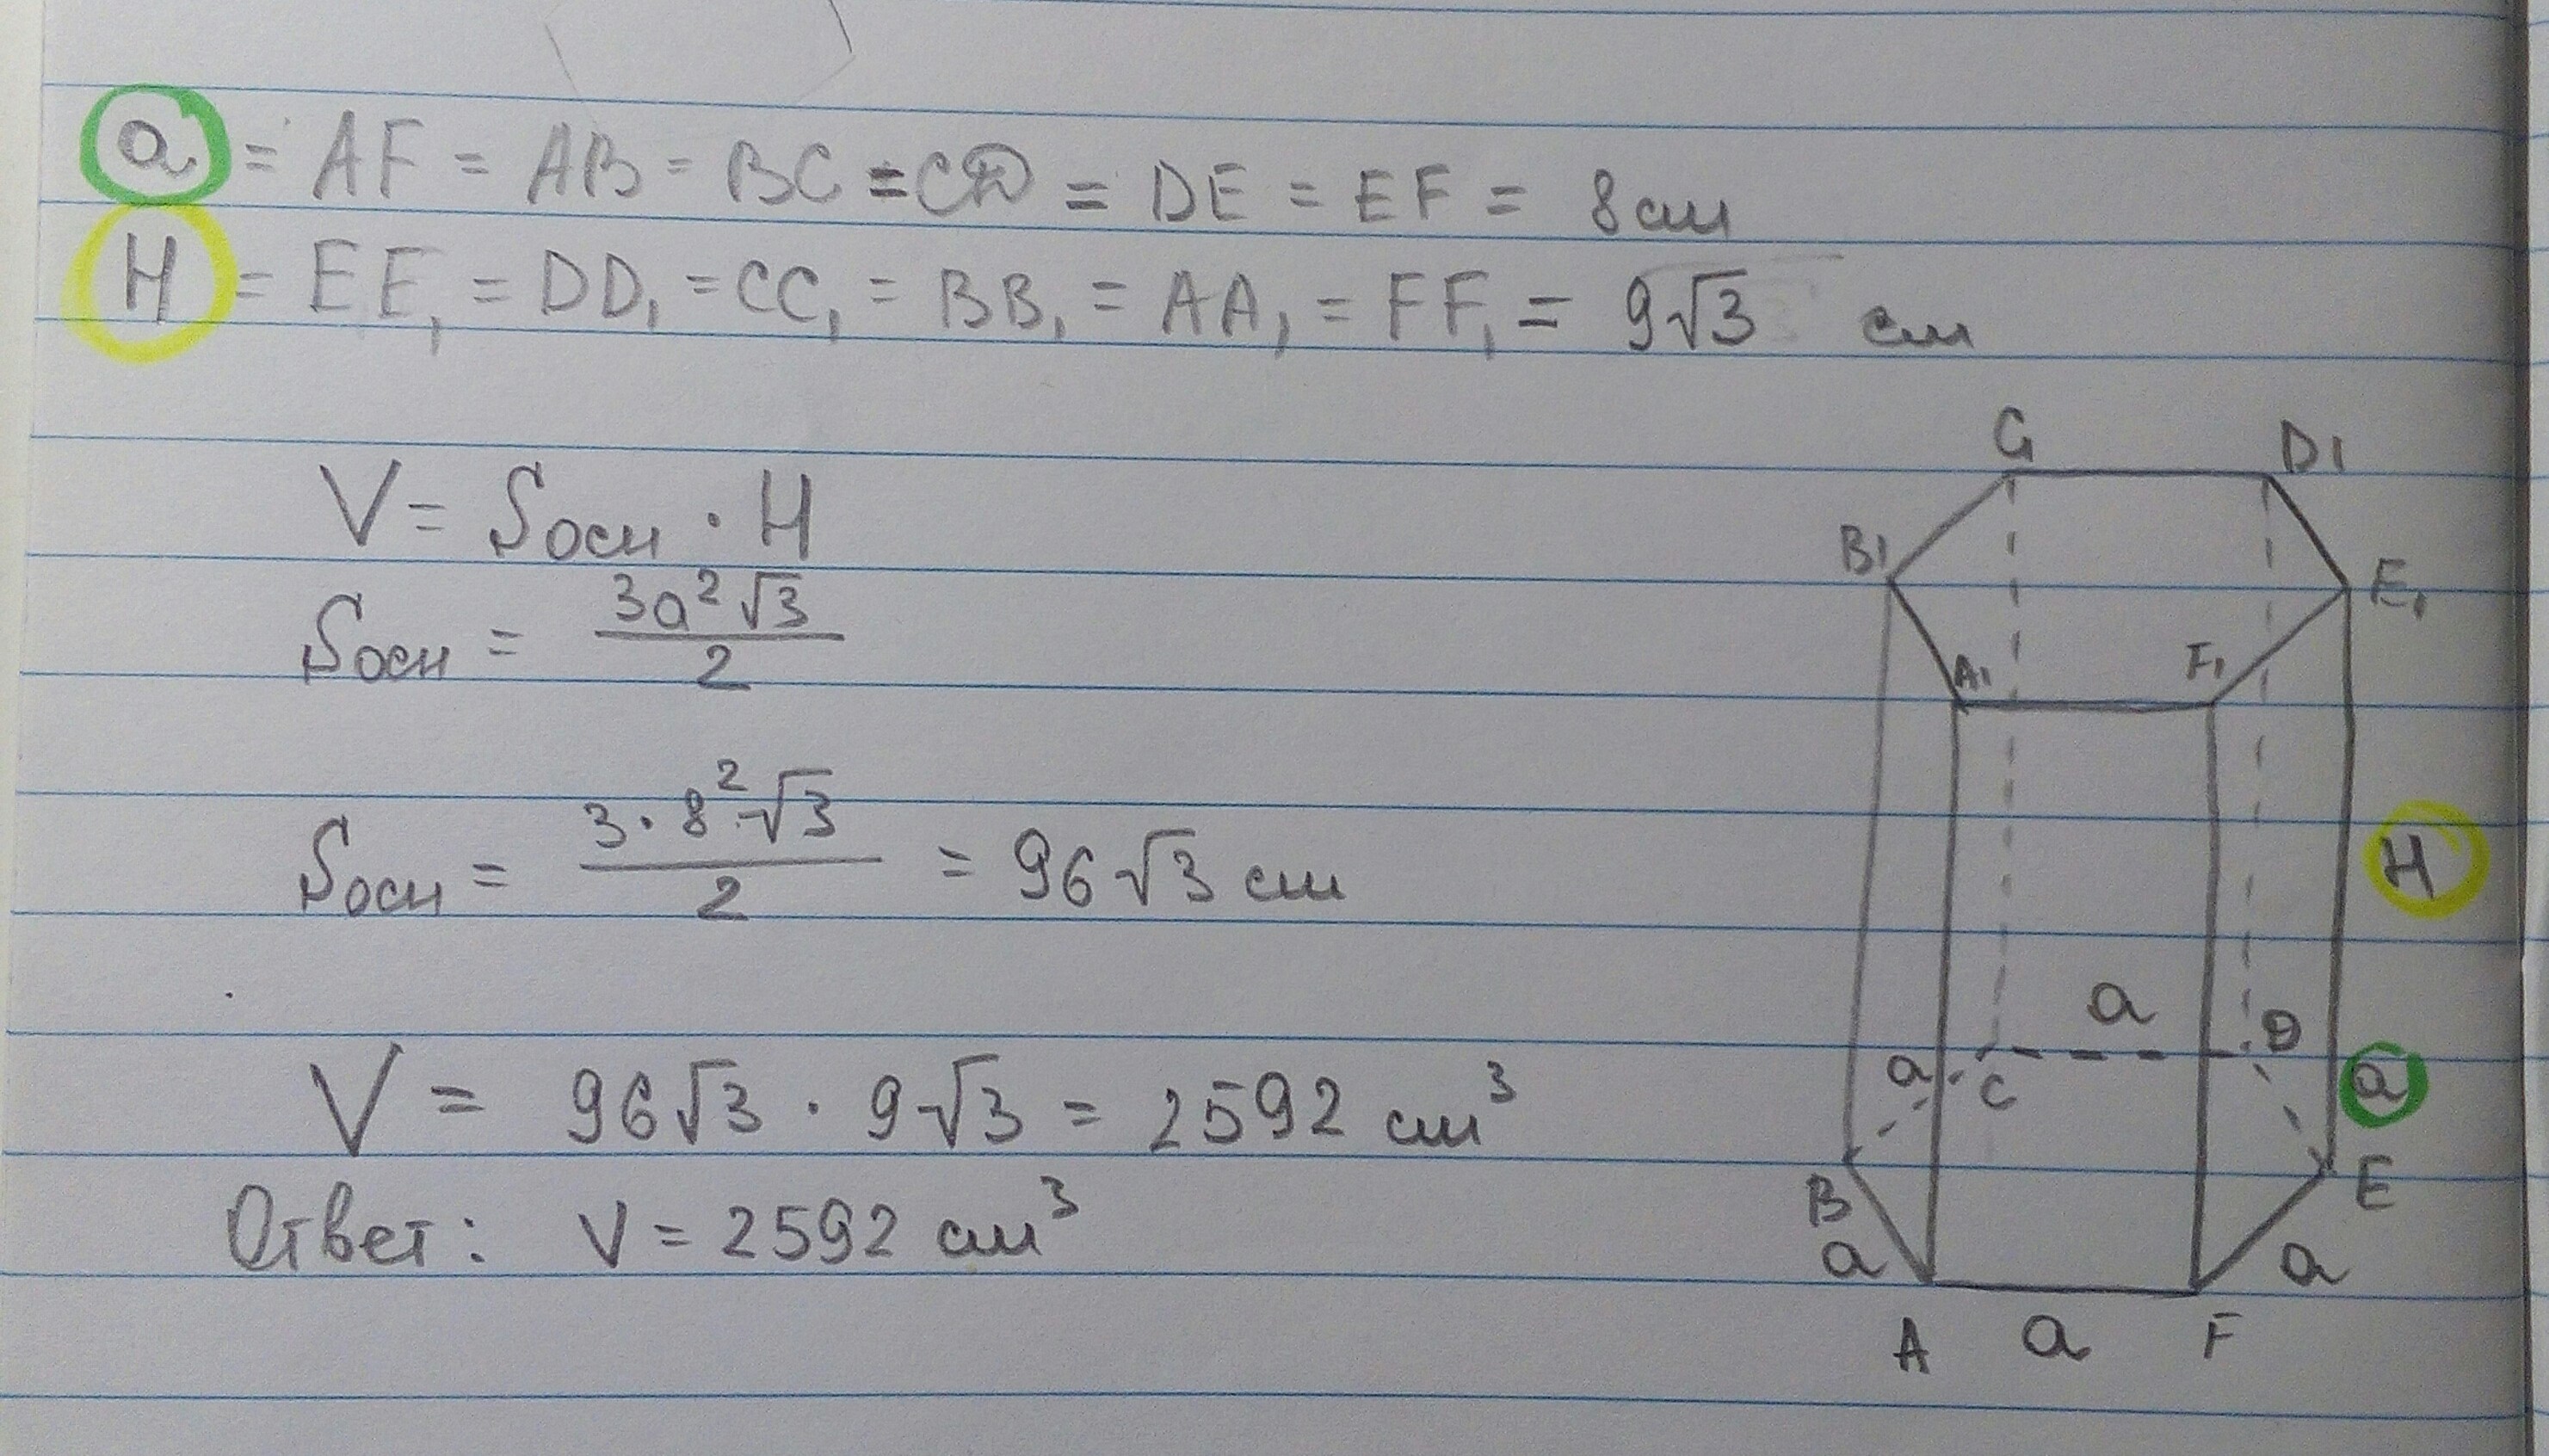 a = AF = AB = BC = CD = DE = EF = 8 см
H = EE₁ = DD₁ = CC₁ = BB₁ = AA₁ = FF₁ = 9√3 см
V = Sосн · H
Sосн = 3a²√3 / 2
Sосн = 3·8²·√3 / 2 = 96√3 см
V = 96√3 · 9√3 = 2592 см³
Ответ: V = 2592 см³
C₁ D₁
B₁ E₁
A₁ F₁
H
a D
a C a
B E
a a
A a F